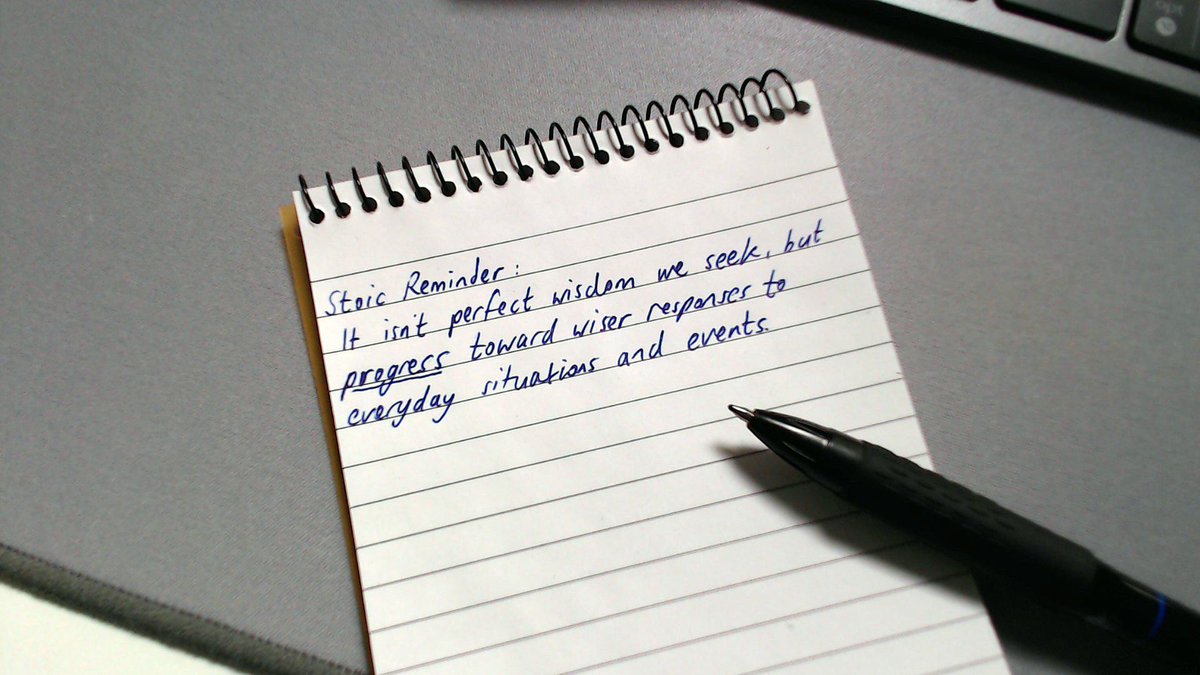 Stoic Reminder:
It isn't perfect wisdom we seek, but
progress toward wiser responses to
everyday situations and events.
opt